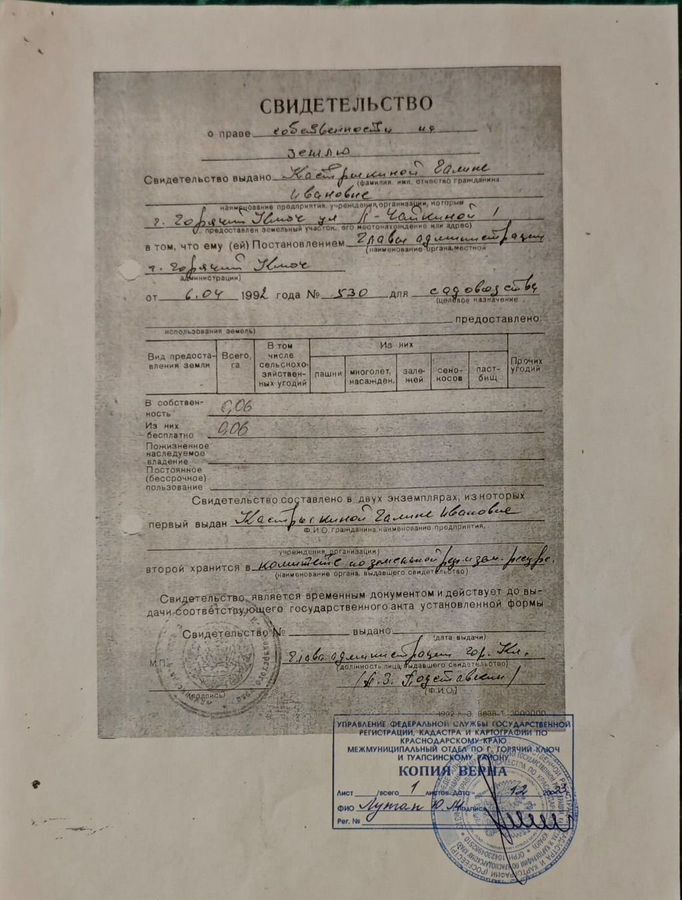 СВИДЕТЕЛЬСТВО
о праве собственности на
землю
Свидетельство выдано Кастрыкиной Галине
(фамилия, имя, отчество гражданина,
Ивановне
наименование предприятия, учреждения, организации, которым
г. Горячий Ключ ул Л-Чайкиной 1
предоставлен земельный участок, его местонахождение или адрес)
в том, что ему (ей) Постановлением Главы администрации
(наименование органа местной
г. Горячий Ключ
администрации)
от 6.04 1992 года № 530 для садоводства
(целевое назначение
предоставлено:
использования земель)
Вид предоставления земли
Всего, га
В том числе сельскохозяйственных угодий
Из них
пашни
многолет. насажден.
залежей
сенокосов
пастбищ
Прочих угодий
В собственность 0,06
Из них бесплатно 0,06
Пожизненное наследуемое владение
Постоянное (бессрочное) пользование
Свидетельство составлено в двух экземплярах, из которых
первый выдан Кастрыкиной Галине Ивановне
Ф.И.О. гражданина, наименование предприятия,
учреждения, организации)
второй хранится в комитете по земельной реф. и зем. ресурс.
(наименование органа, выдавшего свидетельство)
Свидетельство является временным документом и действует до вы-
дачи соответствующего государственного акта установленной формы
Свидетельство № выдано
(дата выдачи)
Глава администрации гор. Кл.
М.П.
(должность лица, выдавшего свидетельство)
(подпись)
(Ф.И.О.)
УПРАВЛЕНИЕ ФЕДЕРАЛЬНОЙ СЛУЖБЫ ГОСУДАРСТВЕННОЙ
РЕГИСТРАЦИИ, КАДАСТРА И КАРТОГРАФИИ ПО
КРАСНОДАРСКОМУ КРАЮ
МЕЖМУНИЦИПАЛЬНЫЙ ОТДЕЛ ПО Г. ГОРЯЧИЙ КЛЮЧ
И ТУАПСИНСКОМУ РАЙОНУ
КОПИЯ ВЕРНА
Лист /всего 1 листов Дата 12 2023
ФИО подпись
Рег. №